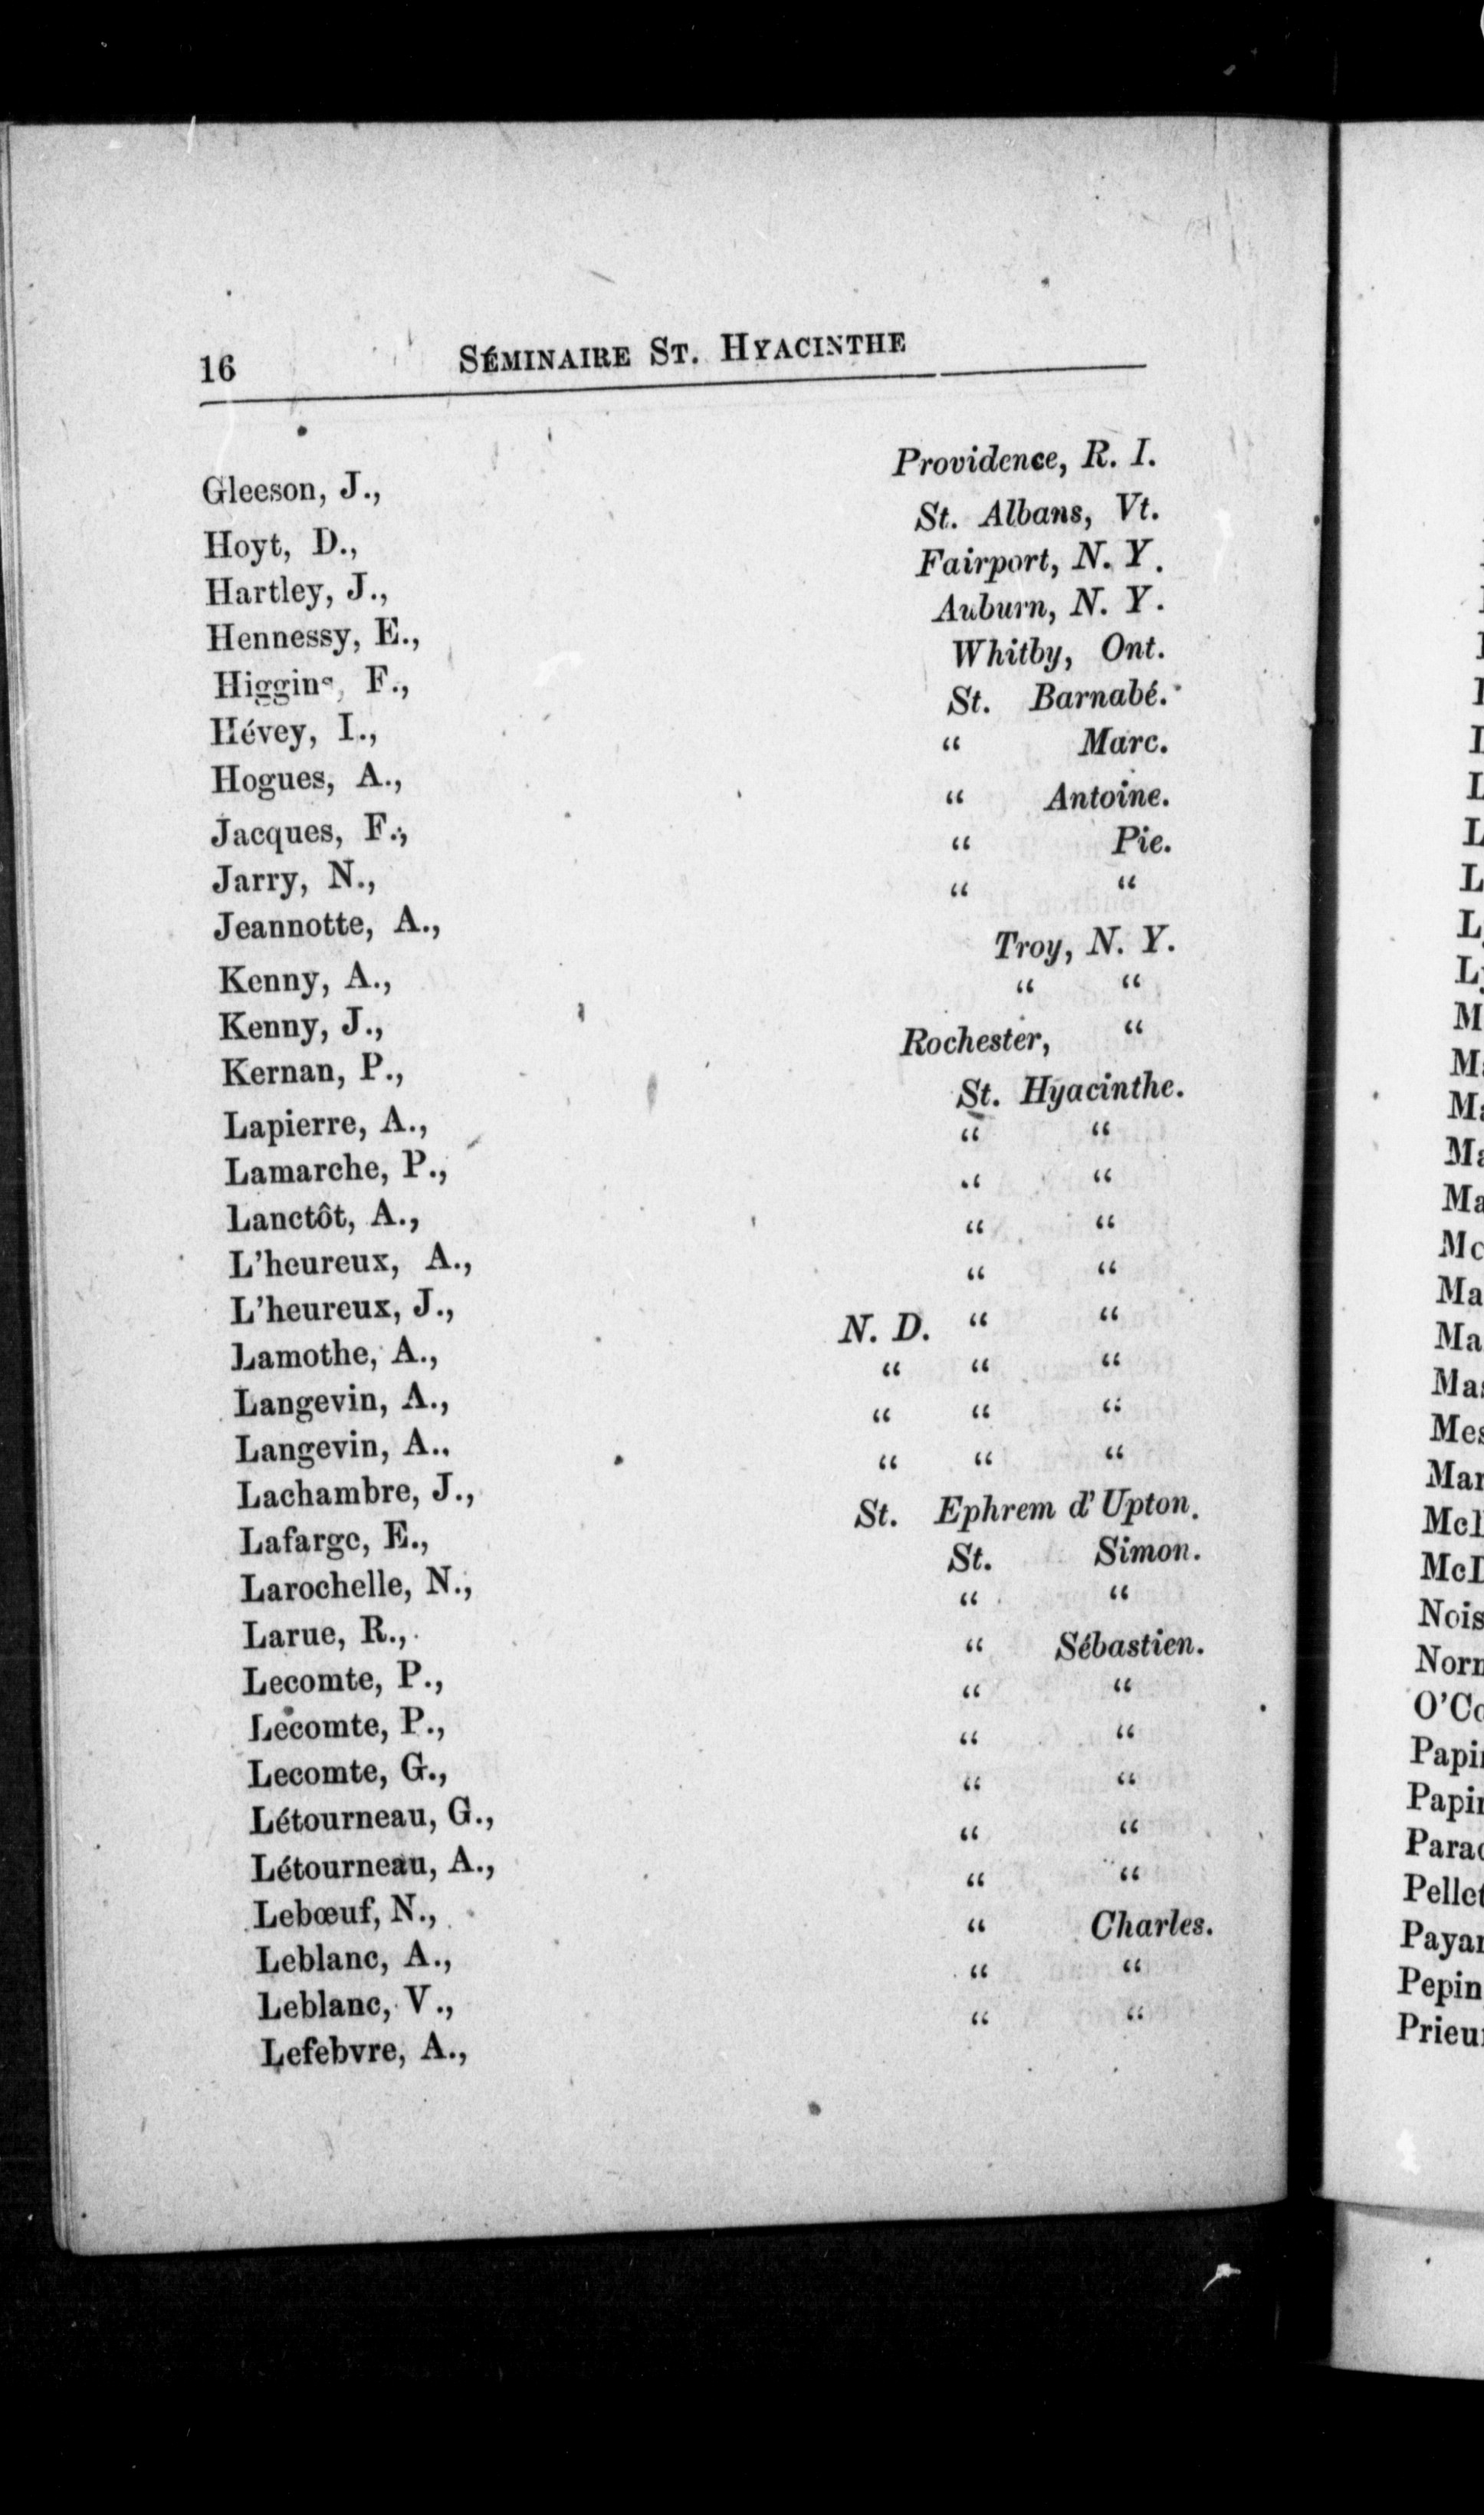 16 SÉMINAIRE ST. HYACINTHE
Gleeson, J., Providence, R. I.
Hoyt, D., St. Albans, Vt.
Hartley, J., Fairport, N. Y.
Hennessy, E., Auburn, N. Y.
Higgins, F., Whitby, Ont.
Hévey, I., St. Barnabé.
Hogues, A., “ Marc.
Jacques, F., “ Antoine.
Jarry, N., “ Pie.
Jeannotte, A., “ “
Kenny, A., Troy, N. Y.
Kenny, J., “ “
Kernan, P., Rochester, “
Lapierre, A., St. Hyacinthe.
Lamarche, P., “ “
Lanctôt, A., “ “
L'heureux, A., “ “
L'heureux, J., “ “
Lamothe, A., N. D. “ “
Langevin, A., “ “ “
Langevin, A., “ “ “
Lachambre, J., “ “ “
Lafarge, E., St. Ephrem d'Upton.
Larochelle, N., St. Simon.
Larue, R., “ “
Lecomte, P., “ Sébastien.
Lecomte, P., “ “
Lecomte, G., “ “
Létourneau, G., “ “
Létourneau, A., “ “
Lebœuf, N., “ “
Leblanc, A., “ Charles.
Leblanc, V., “ “
Lefebvre, A., “ “